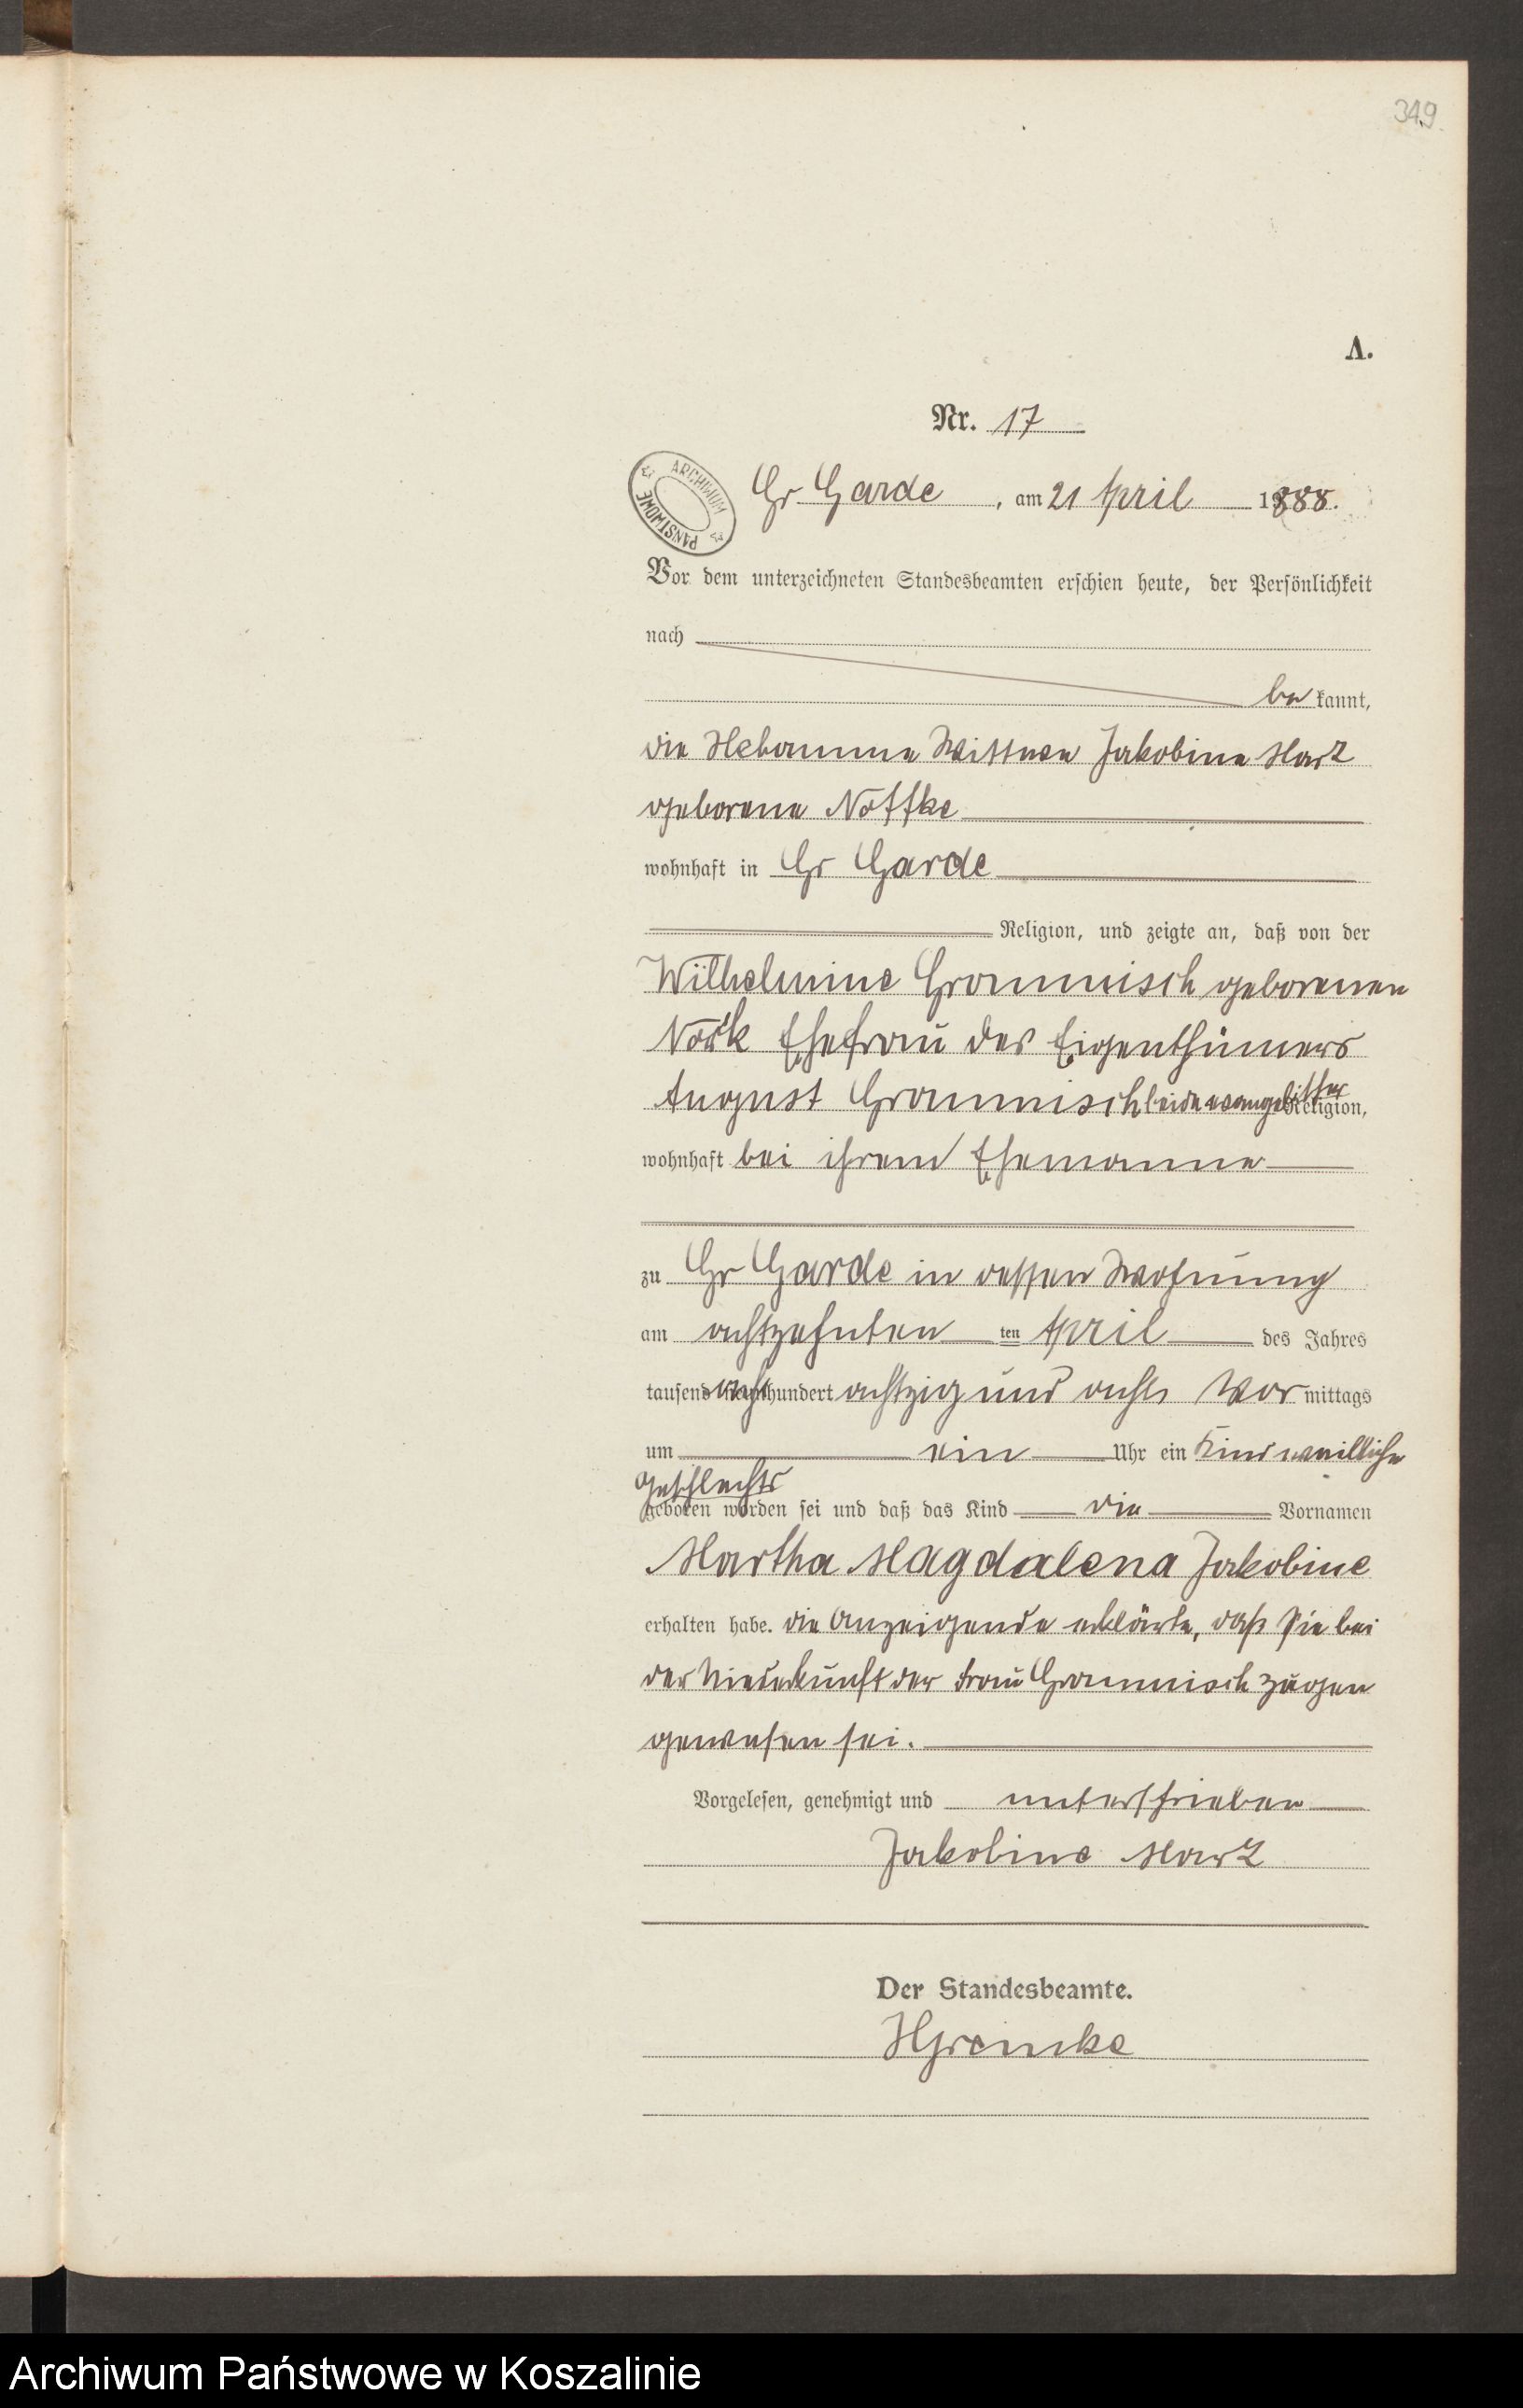 349.
A.
Nr. 17
ARCHIWUM PAŃSTWOWE
Gr Garde, am 21 April 1888.
Vor dem unterzeichneten Standesbeamten erschien heute, der Persönlichkeit
nach
be kannt,
die Hebamme Wittwe Jakobine Marz
geborene Noffke
wohnhaft in Gr Garde
Religion, und zeigte an, daß von der
Wilhelmine Grommisch geborenen
Ehefrau des Eigenthümers
August Grommisch beide evangelischer Religion,
wohnhaft bei ihrem Ehemanne
zu Gr Garde in dessen Wohnung
am achtzehnten ten April des Jahres
tausend acht hundert achtzig und acht Vor mittags
um ein Uhr ein Kind weiblichen
Geschlechts
geboren worden sei und daß das Kind die Vornamen
Martha Magdalena Jakobine
erhalten habe. die Anzeigende erklärte, daß sie bei
der Niederkunft der Frau Grommisch zugen
gewesen sei.
Vorgelesen, genehmigt und unterschrieben
Jakobine Marz
Der Standesbeamte.
Archiwum Państwowe w Koszalinie